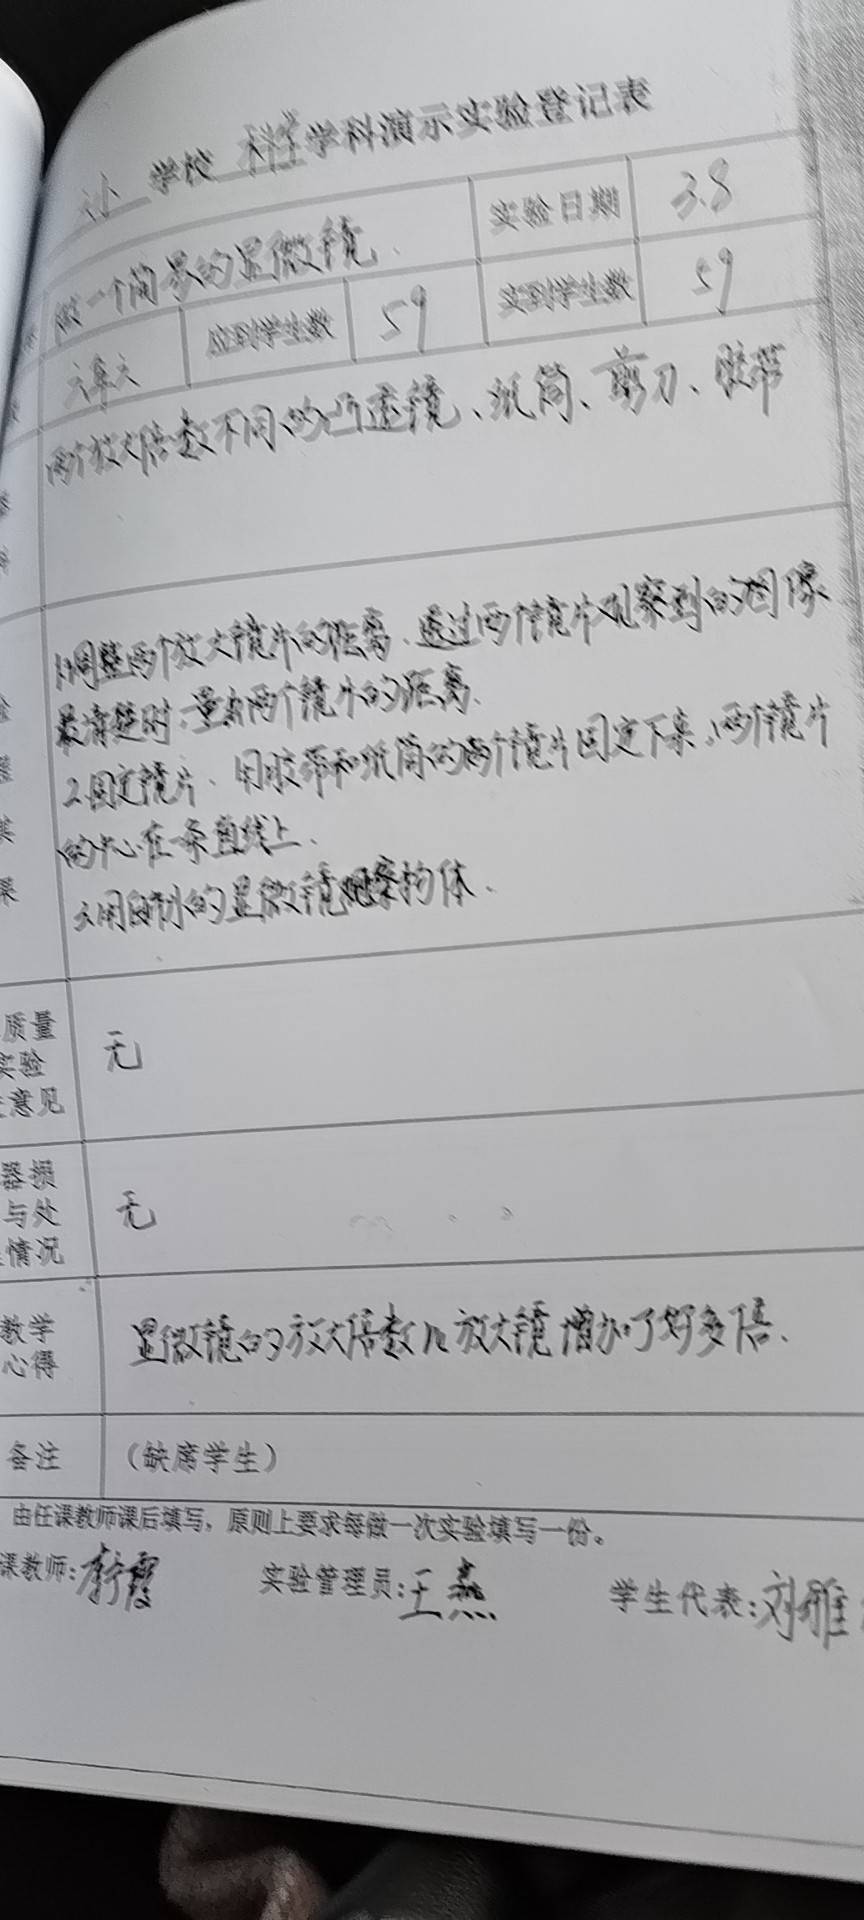 小 学校 科学 学科演示实验登记表
做一个简易的显微镜. 实验日期 3.8
六年六 应到学生数 59 实到学生数 59
两个放大倍数不同的凸透镜、纸筒、剪刀、胶带
1.调整两个放大镜片的距离、透过两个镜片观察到的图像
最清楚时,量出两个镜片的距离.
2.固定镜片、用胶带和纸筒的两个镜片固定下来,两个镜片
的中心在一条直线上.
3.用自制的显微镜观察物体、
质量
实验 无
意见
器损
与处 无
情况
教学
心得 显微镜的放大倍数比放大镜增加了好多倍、
备注 (缺席学生)
由任课教师课后填写,原则上要求每做一次实验填写一份。
课教师: 霞 实验管理员:王燕 学生代表:刘雅